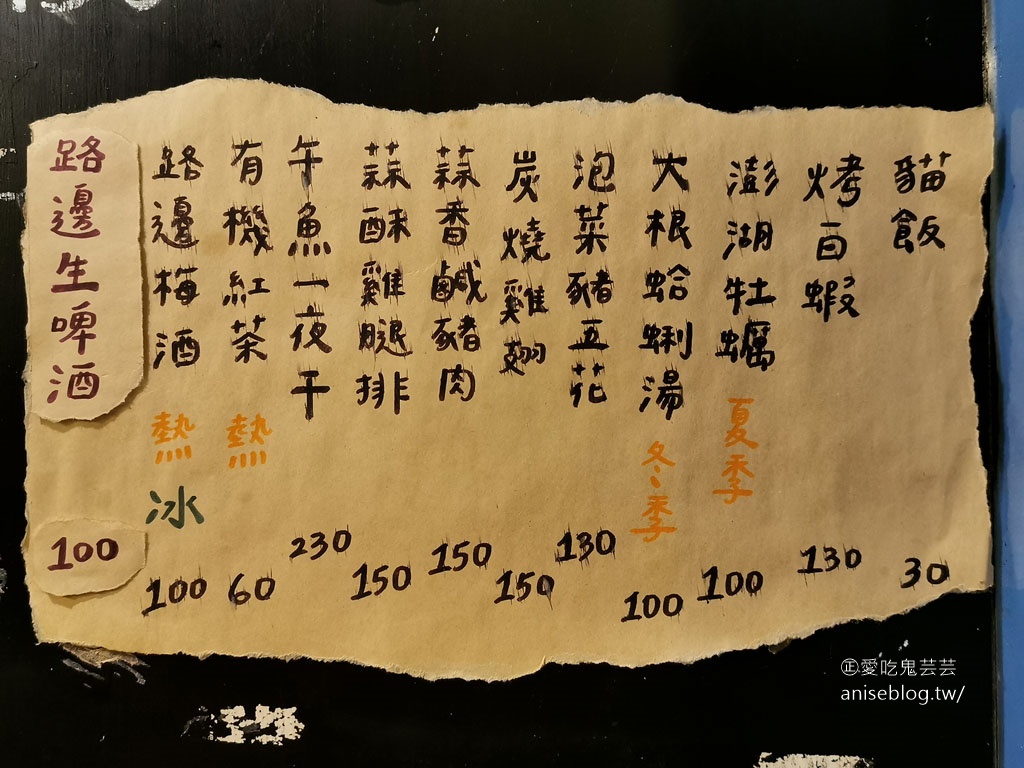 貓飯 30
烤白蝦 130
澎湖牡蠣 夏季 100
大根蛤蜊湯 冬季 100
泡菜豬五花 130
炭燒雞翅 150
蒜香鹹豬肉 150
蒜酥雞腿排 150
午魚一夜干 230
有機紅茶 熱 60
路邊梅酒 熱 冰 100
路邊生啤酒 100
㊣愛吃鬼芸芸
aniseblog.tw/